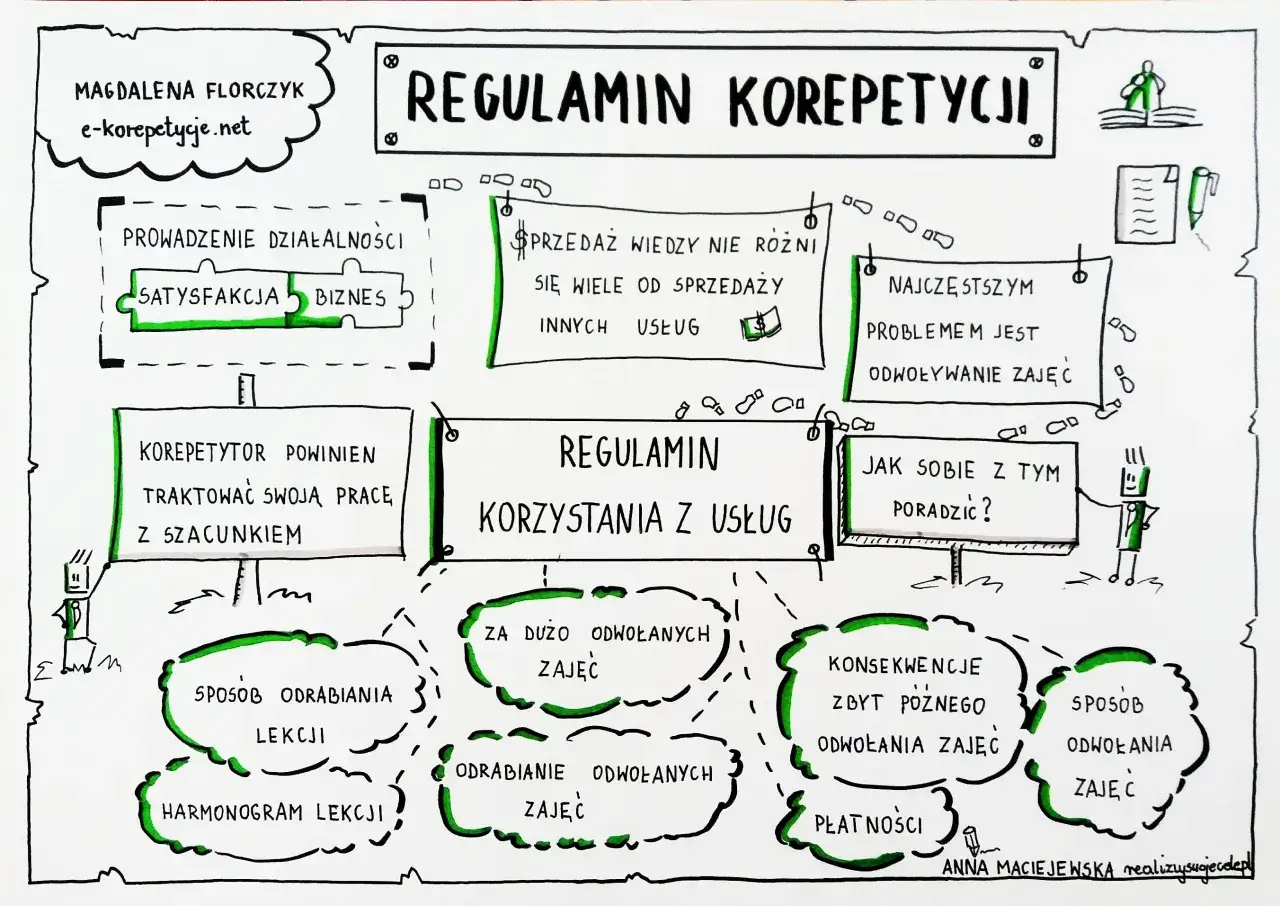 MAGDALENA FLORCZYK
e-korepetycje.net
REGULAMIN KOREPETYCJI
PROWADZENIE DZIAŁALNOŚCI
SATYSFAKCJA BIZNES
$PRZEDAŻ WIEDZY NIE RÓŻNI
SIĘ WIELE OD SPRZEDAŻY
INNYCH USŁUG
$
NAJCZĘSTSZYM
PROBLEMEM JEST
ODWOŁYWANIE ZAJĘĆ
KOREPETYTOR POWINIEN
TRAKTOWAĆ SWOJĄ PRACĘ
Z SZACUNKIEM
REGULAMIN
KORZYSTANIA Z USŁUG
JAK SOBIE Z TYM
PORADZIĆ?
SPOSÓB ODRABIANIA
LEKCJI
HARMONOGRAM LEKCJI
ZA DUŻO ODWOŁANYCH
ZAJĘĆ
ODRABIANIE ODWOŁANYCH
ZAJĘĆ
KONSEKWENCJE
ZBYT PÓŹNEGO
ODWOŁANIA ZAJĘĆ
PŁATNOŚCI
SPOSÓB
ODWOŁANIA
ZAJĘĆ
ANNA MACIEJEWSKA realizujswojecele.pl